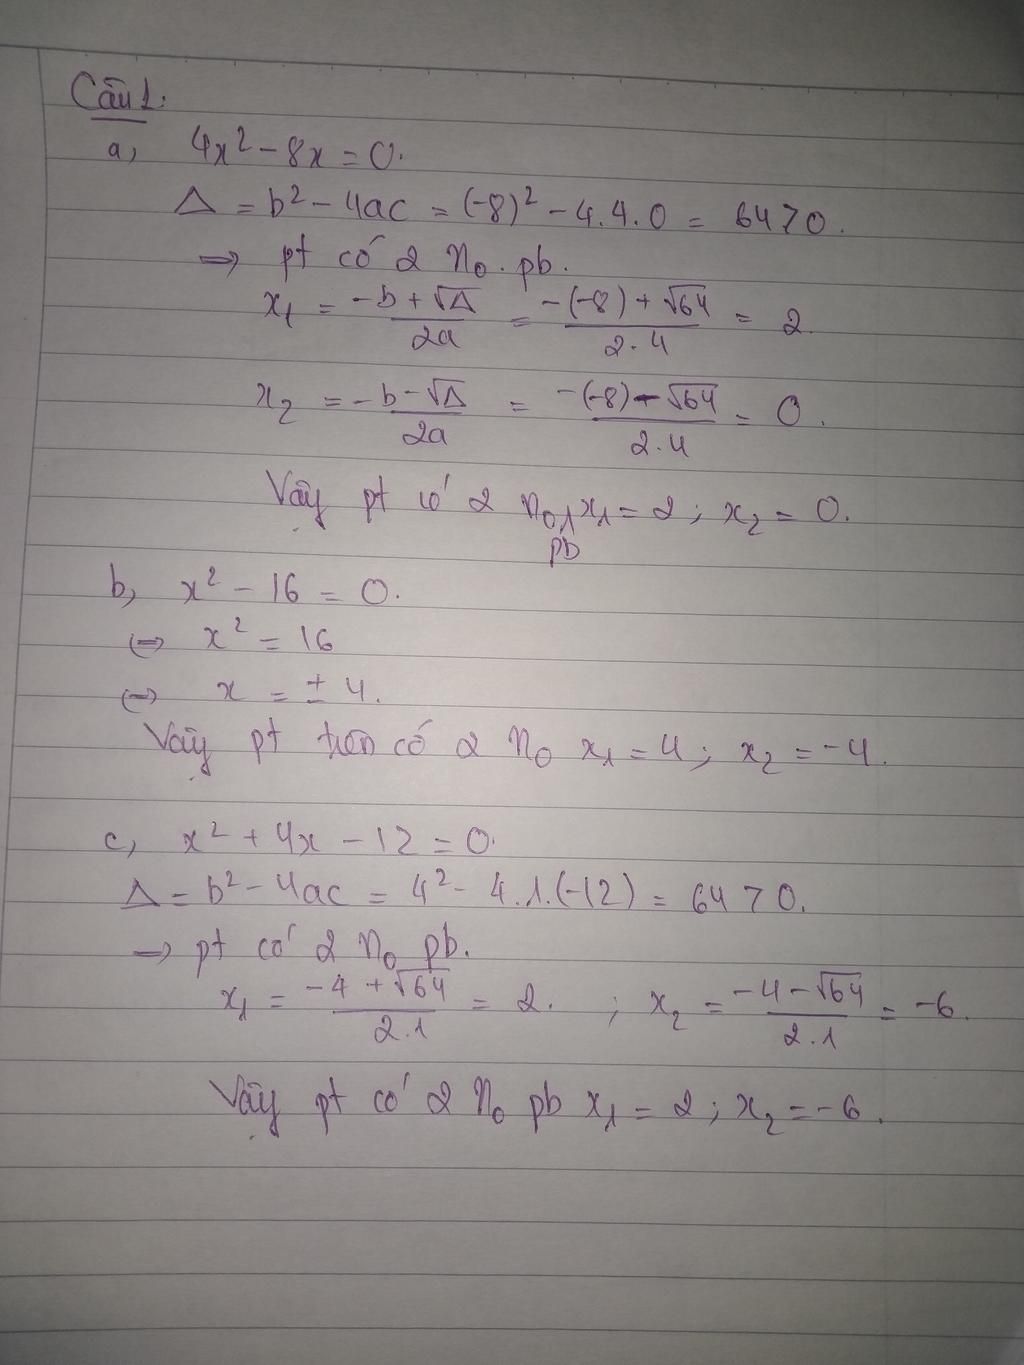 Câu 1:
a, 4x² - 8x = 0.
Δ = b² - 4ac = (-8)² - 4.4.0 = 64 > 0.
=> pt có 2 n₀ pb.
x₁ = (-b + √Δ)/2a = (-(-8) + √64)/2.4 = 2.
x₂ = (-b - √Δ)/2a = (-(-8) - √64)/2.4 = 0.
Vậy pt có 2 n₀ pb, x₁ = 2; x₂ = 0.
b, x² - 16 = 0.
<=> x² = 16
<=> x = ± 4.
Vậy pt trên có 2 n₀ x₁ = 4; x₂ = -4.
c, x² + 4x - 12 = 0.
Δ = b² - 4ac = 4² - 4.1.(-12) = 64 > 0.
=> pt có 2 n₀ pb.
x₁ = (-4 + √64)/2.1 = 2. ; x₂ = (-4 - √64)/2.1 = -6.
Vậy pt có 2 n₀ pb x₁ = 2; x₂ = -6.